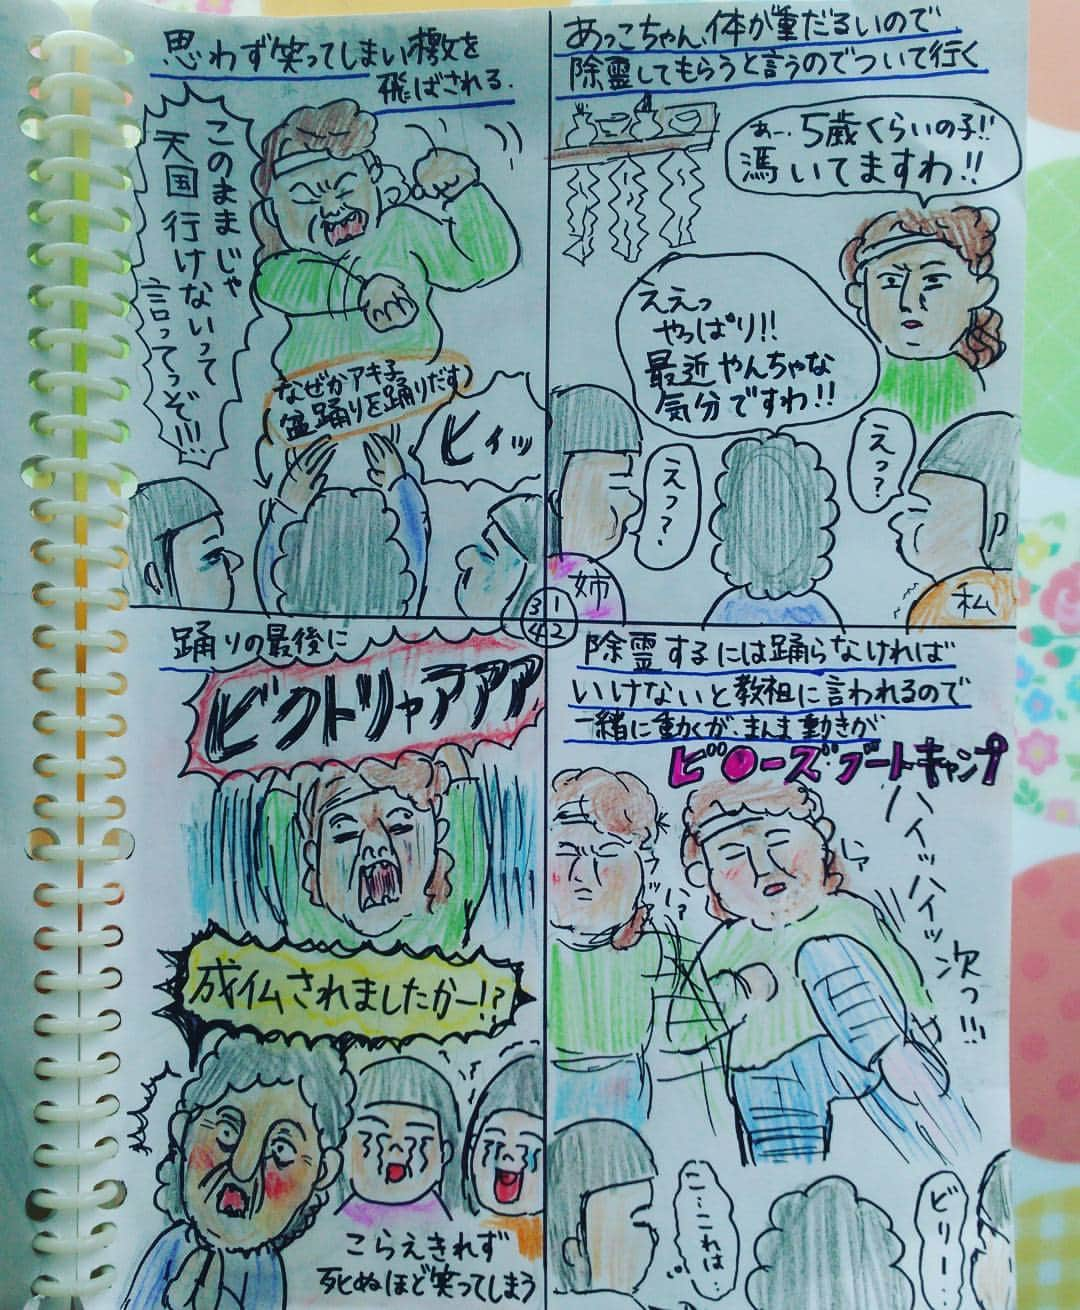 あっこちゃん、体が重だるいので
除霊してもらうと言うのでついて行く
あー、5歳くらいの子!!
憑いてますわ!!
ええっ
やっぱり!!
最近やんちゃな
気分ですわ!!
えっ?
えっ?
姉
私
3 1
4 2
除霊するには踊らなければ
いけないと教祖に言われるので
一緒に動くが、まんま動きが
ビ●ーズ・ブートキャンプ
ハイッハイッ
次っ!!!
こ…これは…
ビリー…
思わず笑ってしまい檄を
飛ばされる.
このままじゃ
天国行けないって
言ってっぞ!!!
なぜかアキ子
盆踊りを踊りだす
ヒィッ
踊りの最後に
ビクトリャアアア
成仏されましたかー!?
こらえきれず
死ぬほど笑ってしまう